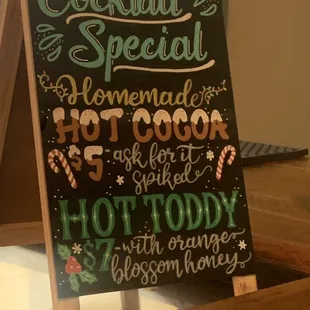 Cocktail
Special
Homemade
HOT COCOA
$5 ask for it
spiked
HOT TODDY
$7 -with orange
blossom honey